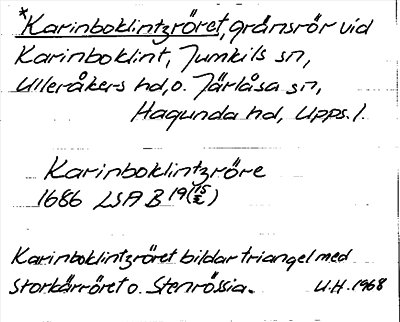 *Karinboklintzröret, gränsrör vid
Karinboklint, Jumkils sn,
Ulleråkers hd, o. Järlåsa sn,
Hagunda hd, Upps. l.
Karinboklintzröre
1686 LSA B 19(15/2)
Karinboklintzröret bildar triangel med
Storkärröret o. Stenrössia. U.H. 1968